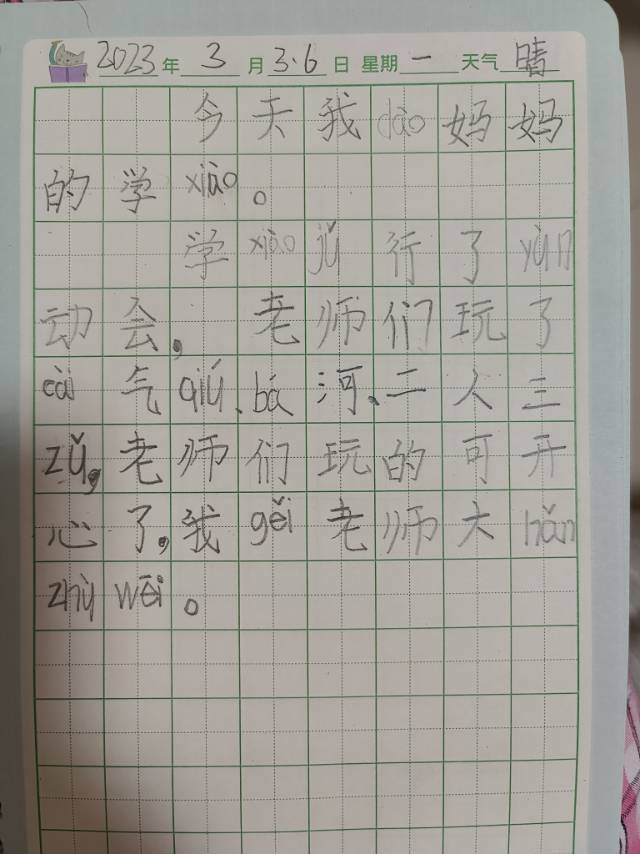 2023年 3 月 3.6 日 星期 一 天气 晴
今天我dào妈妈
的学xiào。
学xiào jǔ行了yùn
动会,老师们玩了
cǎi气qiú、bá河、二人三
zǔ,老师们玩的可开
心了,我gěi老师大hǎn
zhù wēi。